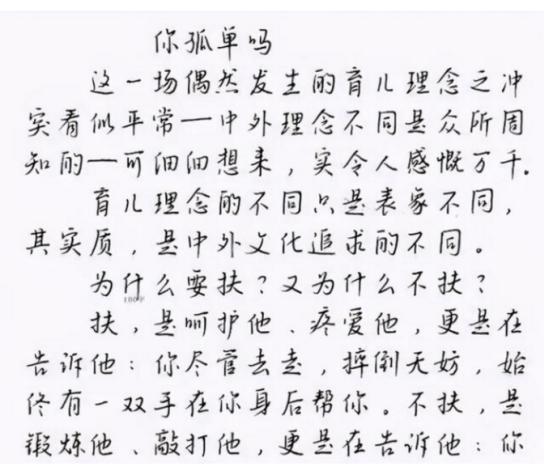 你孤单吗
这一场偶然发生的育儿理念之冲
突看似平常一中外理念不同是众所周
知的一可细细想来，实令人感慨万千。
育儿理念的不同只是表象不同，
其实质，是中外文化追求的不同。
为什么要扶？又为什么不扶？
扶，是呵护他、疼爱他，更是在
告诉他：你尽管去走，摔倒无妨，始
终有一双手在你身后帮你。不扶，是
锻炼他、敲打他，更是在告诉他：你